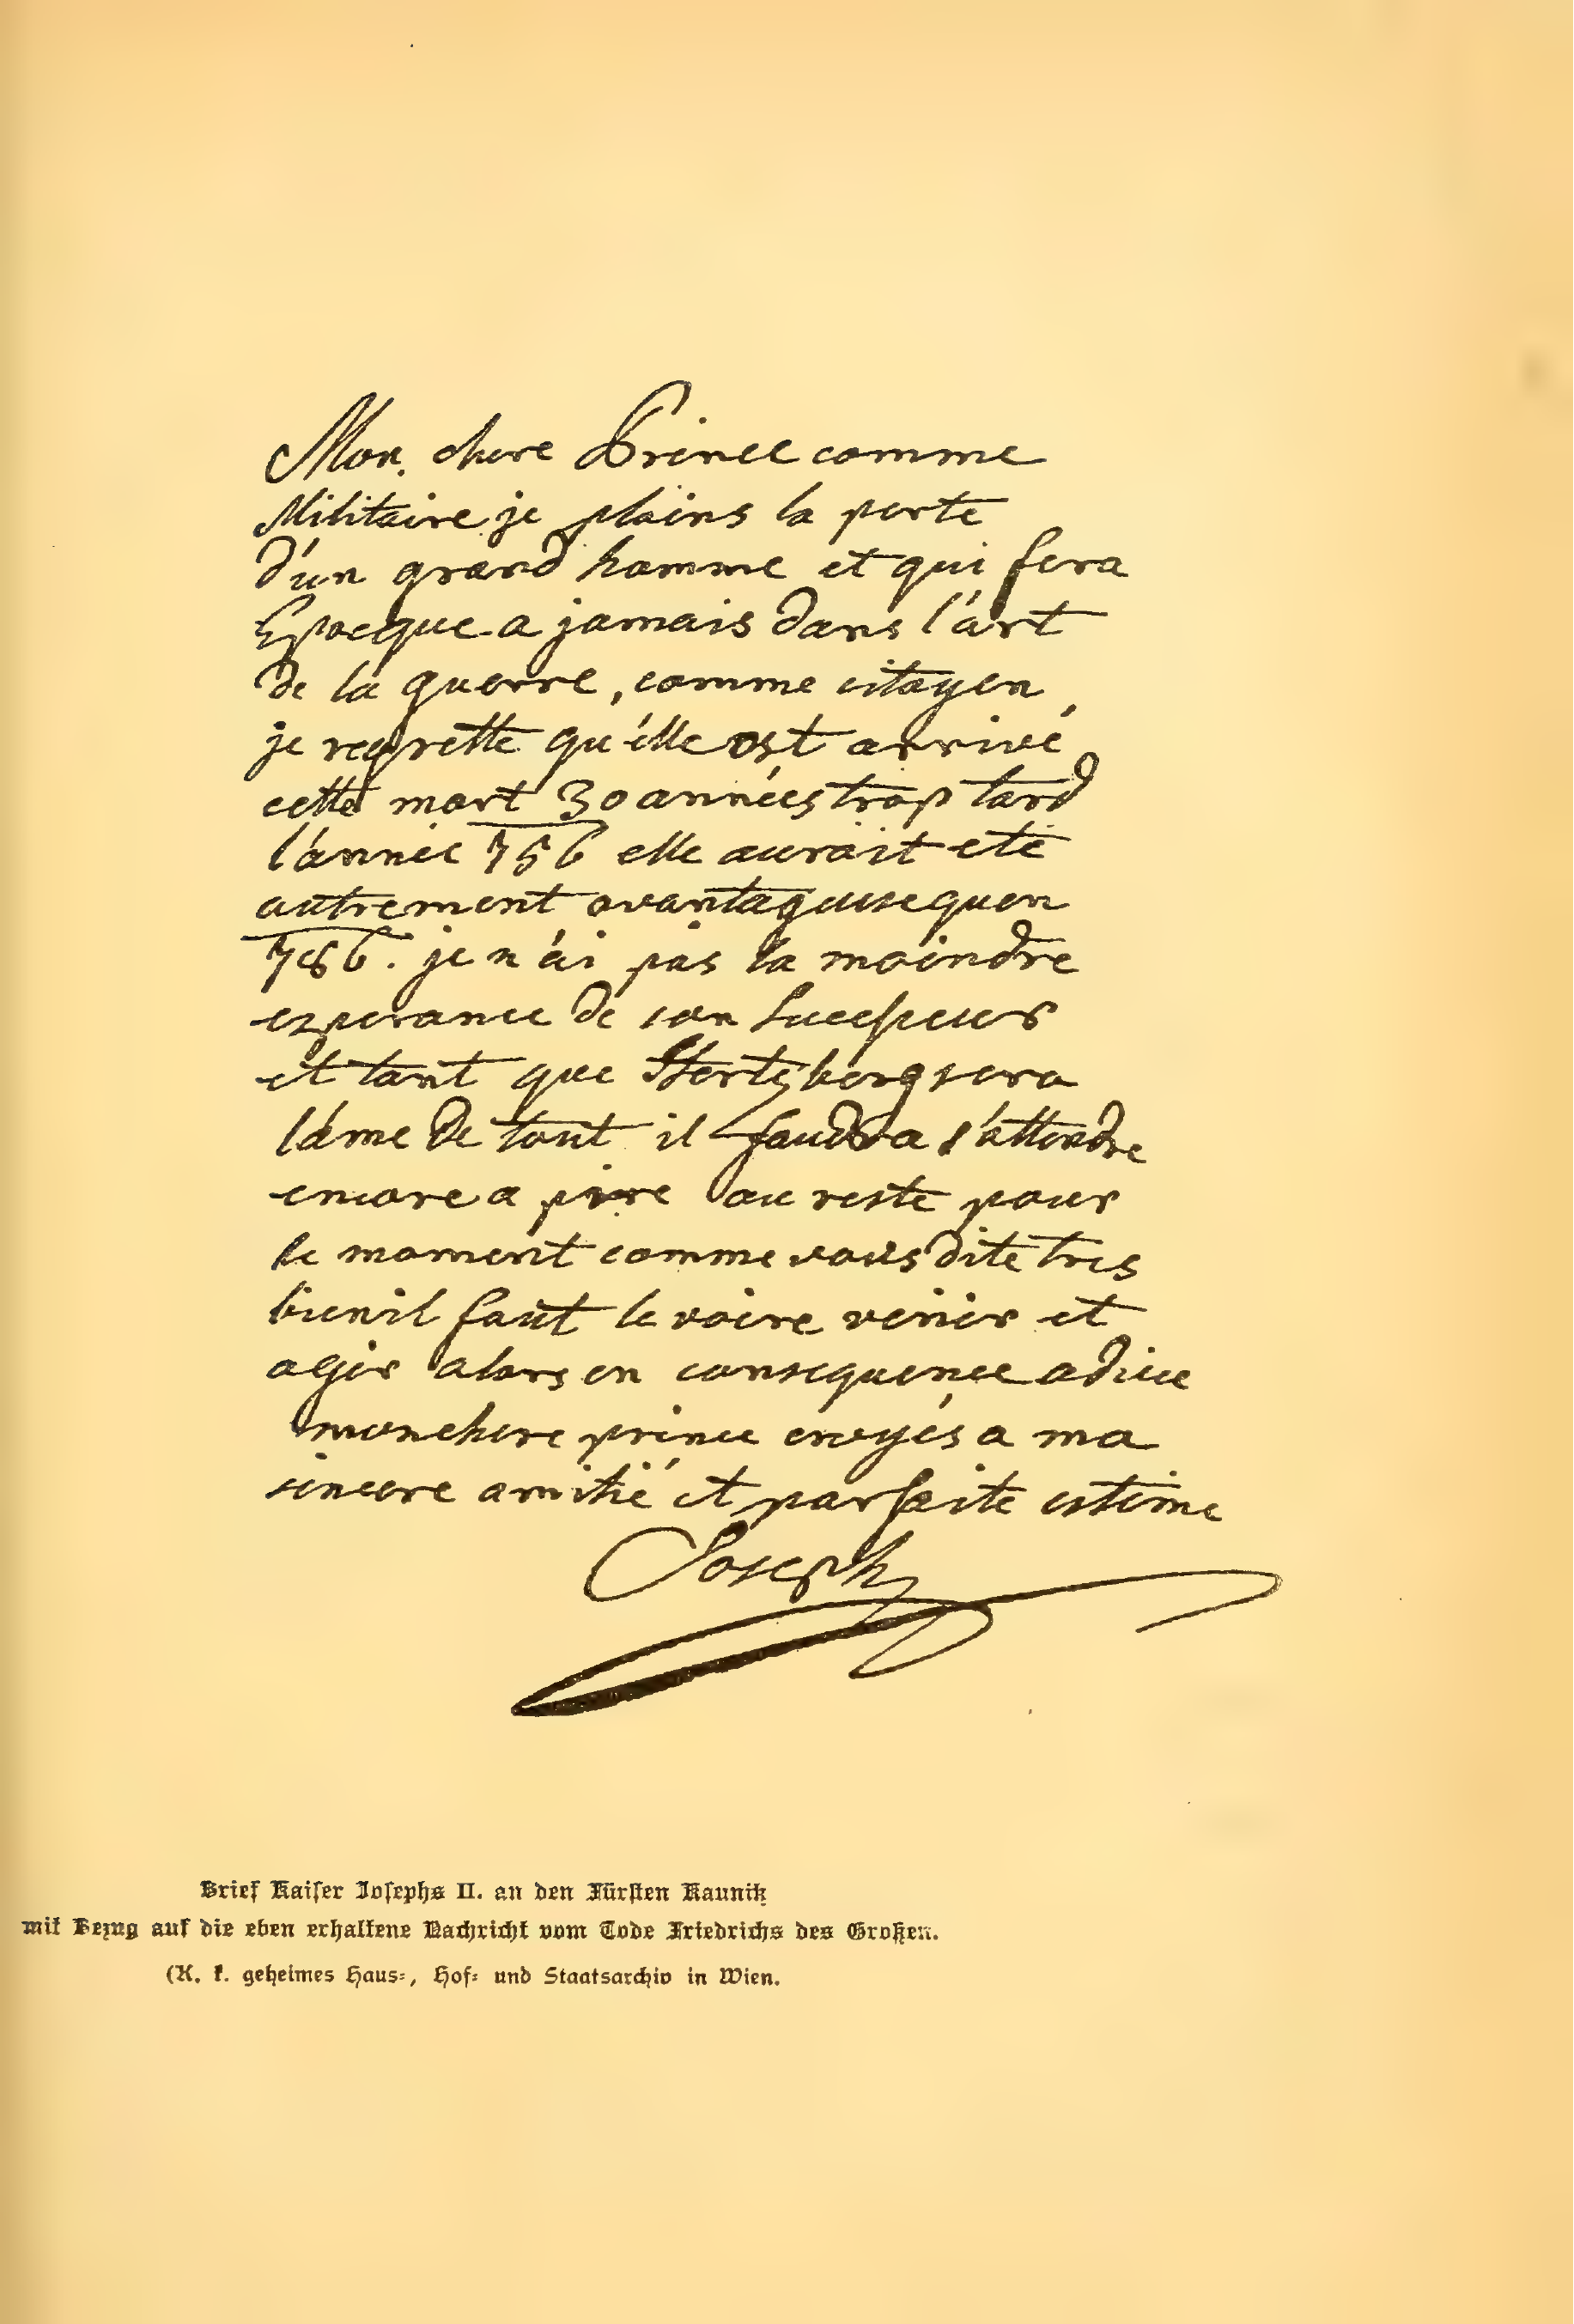 Mon chere Prince comme
Militaire je plains la perte
d'un grand homme et qui fera
Epocque a jamais dans l'art
de la guerre, comme citoyen,
je regrette qu'elle est arrivé
cette mort 30 années trop tard
l'année 756 elle aurait eté
autrement avantageuse quen
786. je n'ai pas la moindre
esperance de son Successeur
et tant que Hertzberg sera
l'ame de tout il faudra s'attendre
encore a pire au reste pour
le moment comme vous dite tres
bien il faut le voire venir et
agir alors en consequence adieu
mon chere prince croyés a ma
sincere amitié et parfaite estime
Joseph
Brief Kaiser Josephs II. an den Fürsten Kaunitz
mit Bezug auf die eben erhaltene Nachricht vom Tode Friedrichs des Großen.
(K. k. geheimes Haus-, Hof- und Staatsarchiv in Wien.